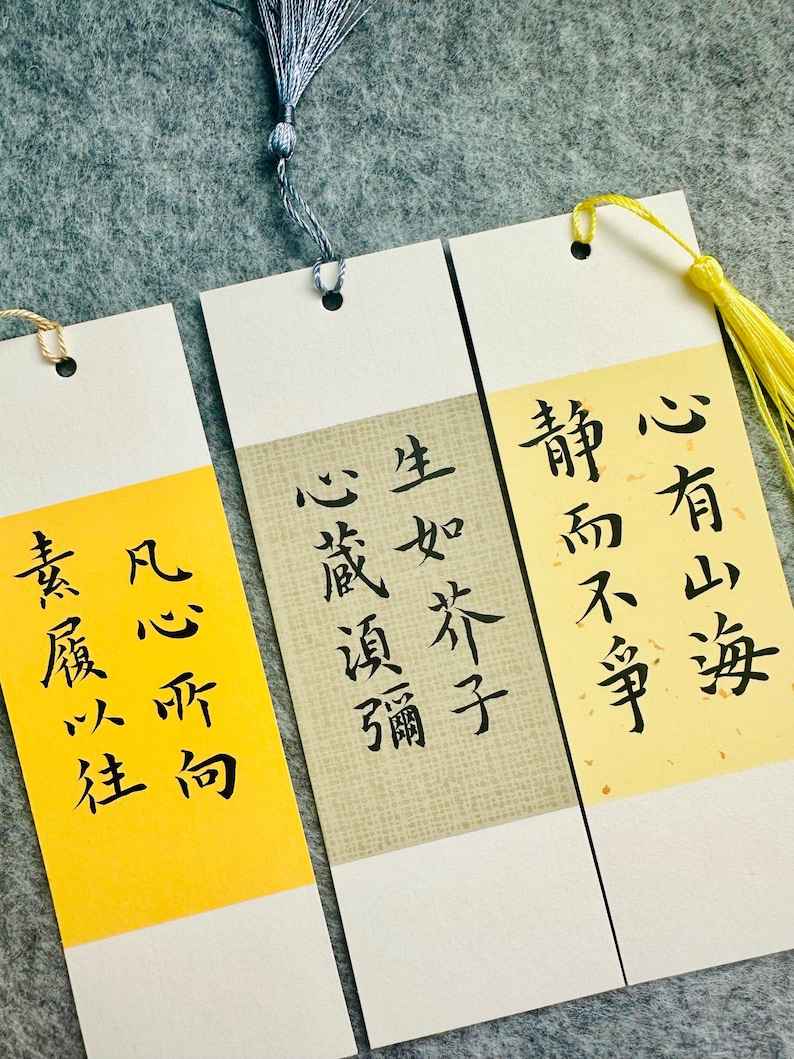 凡心所向
素履以往
生如芥子
心蔵須彌
心有山海
静而不爭